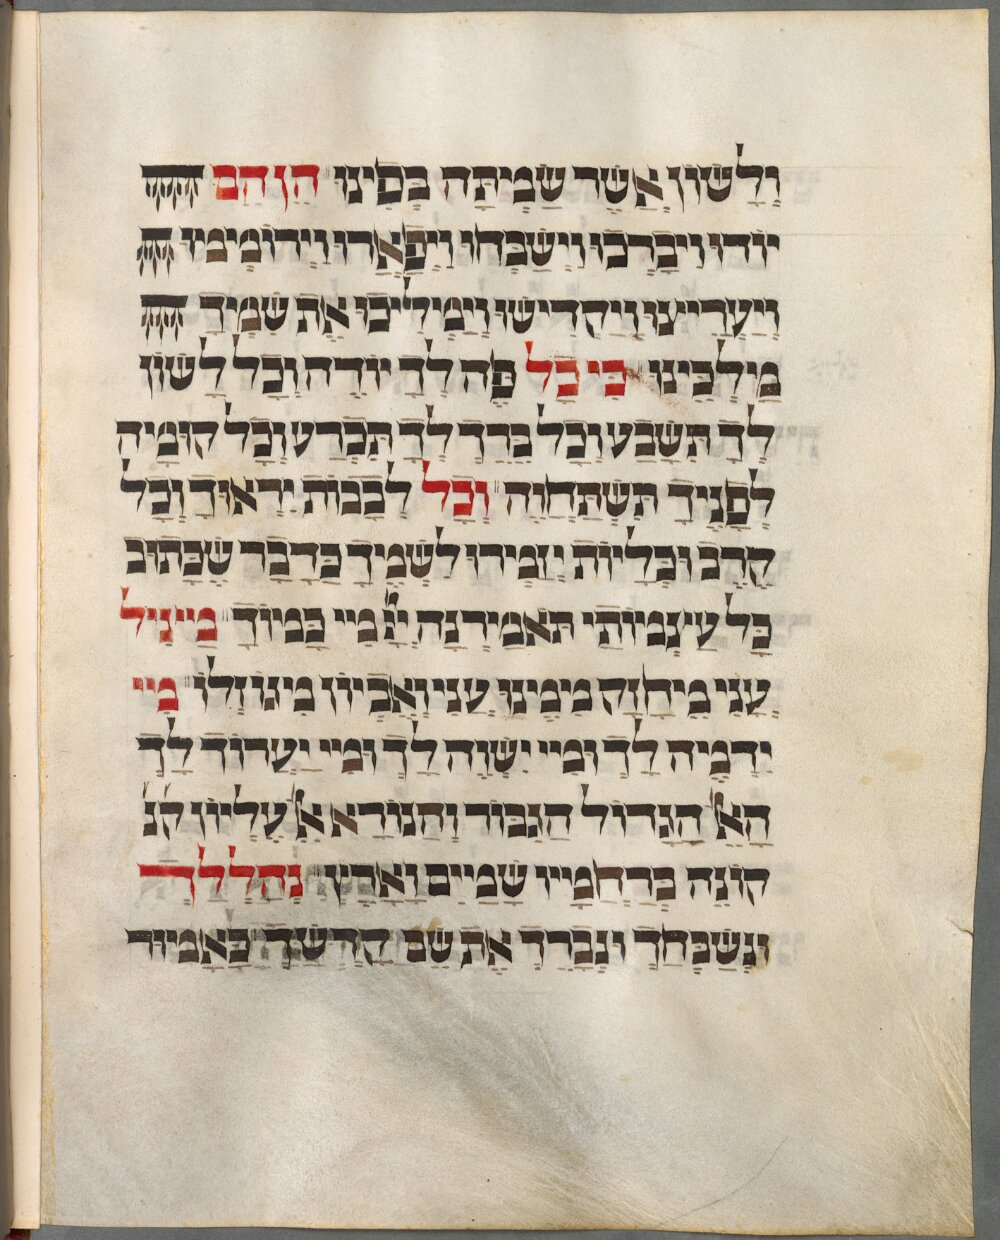 וְלָשׁוֹן אֲשֶׁר שַׂמְתָּה בְּפִינוּ הֵן הֵם
יוֹדוּ וִיבָרְכוּ וִישַׁבְּחוּ וִיפָאֲרוּ וִירוֹמְמוּ
וְיַעֲרִיצוּ וְיַקְדִּישׁוּ וְיַמְלִיכוּ אֶת שִׁמְךָ
מַלְכֵּינוּ כִּי כָל פֶּה לְךָ יוֹדֶה וְכָל לָשׁוֹן
לְךָ תִשָּׁבַע וְכָל בֶּרֶךְ לְךָ תִכְרַע וְכָל קוֹמָה
לְפָנֶיךָ תִּשְׁתַּחֲוֶה וְכָל לְבָבוֹת יִירָאוּךָ וְכָל
קֶרֶב וּכְלָיוֹת יְזַמְּרוּ לִשְׁמֶךָ כַּדָּבָר שֶׁכָּתוּב
כָּל עַצְמוֹתַי תֹּאמַרְנָה יְיָ מִי כָמוֹךָ מַצִּיל
עָנִי מֵחָזָק מִמֶּנּוּ עָנִי וְאֶבְיוֹן מִגּוֹזְלוֹ מִי
יִדְמֶה לָךְ וּמִי יִשְׁוֶה לָךְ וּמִי יַעֲרוֹךְ לָךְ
הָאֵל הַגָּדוֹל הַגִּבּוֹר וְהַנּוֹרָא אֵל עֶלְיוֹן קנ
קוֹנֶה בְּרַחֲמָיו שָׁמַיִם וָאָרֶץ נְהַלֶּלְךָ
וּנְשַׁבֵּחֲךָ וּנְבָרֵךְ אֶת שֵׁם קָדְשֶׁךָ כָּאָמוּר